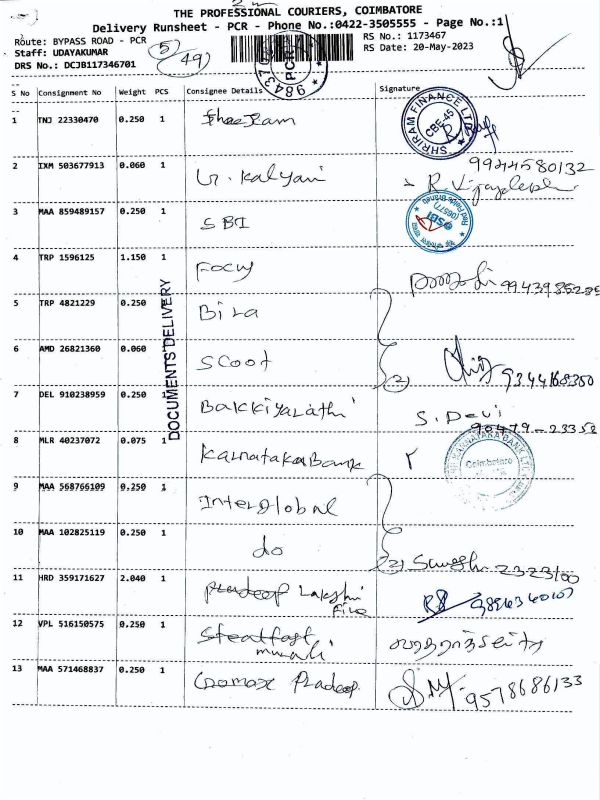 THE PROFESSIONAL COURIERS, COIMBATORE
Delivery Runsheet - PCR - Phone No.:0422-3505555 - Page No.:1
Route: BYPASS ROAD - PCR
RS No.: 1173467
Staff: UDAYAKUMAR
RS Date: 20-May-2023
DRS No.: DCJB117346701
5/49
98437
PCR
S No Consignment No Weight PCS Consignee Details Signature
1 TNJ 22330470 0.250 1 Shree Ram
SHRIRAM FINANCE LTD
CBE-45
2 IXM 503677913 0.060 1 V. Kalyani 9944580132
3 MAA 859489157 0.250 1 SBI
SBI
4 TRP 1596125 1.150 1 Focus
5 TRP 4821229 0.250 1 Bira
DOCUMENTS DELIVERY
6 AMD 26821360 0.060 1 Scoot (2) 9344168350
7 DEL 910238959 0.250 1 Bakkiyarathi S. Devi
90479-23358
8 MLR 40237072 0.075 1 Karnataka Bank
KARNATAKA BANK LTD
Coimbatore
9 MAA 568766109 0.250 1 Interglobal
10 MAA 102825119 0.250 1 do (2) 2323100
11 HRD 359171627 2.040 1 Pradeep Lakshi
Fire
12 VPL 516150575 0.250 1 Steatfast
murali
13 MAA 571468837 0.250 1 Cromax Pradeep 9578686133